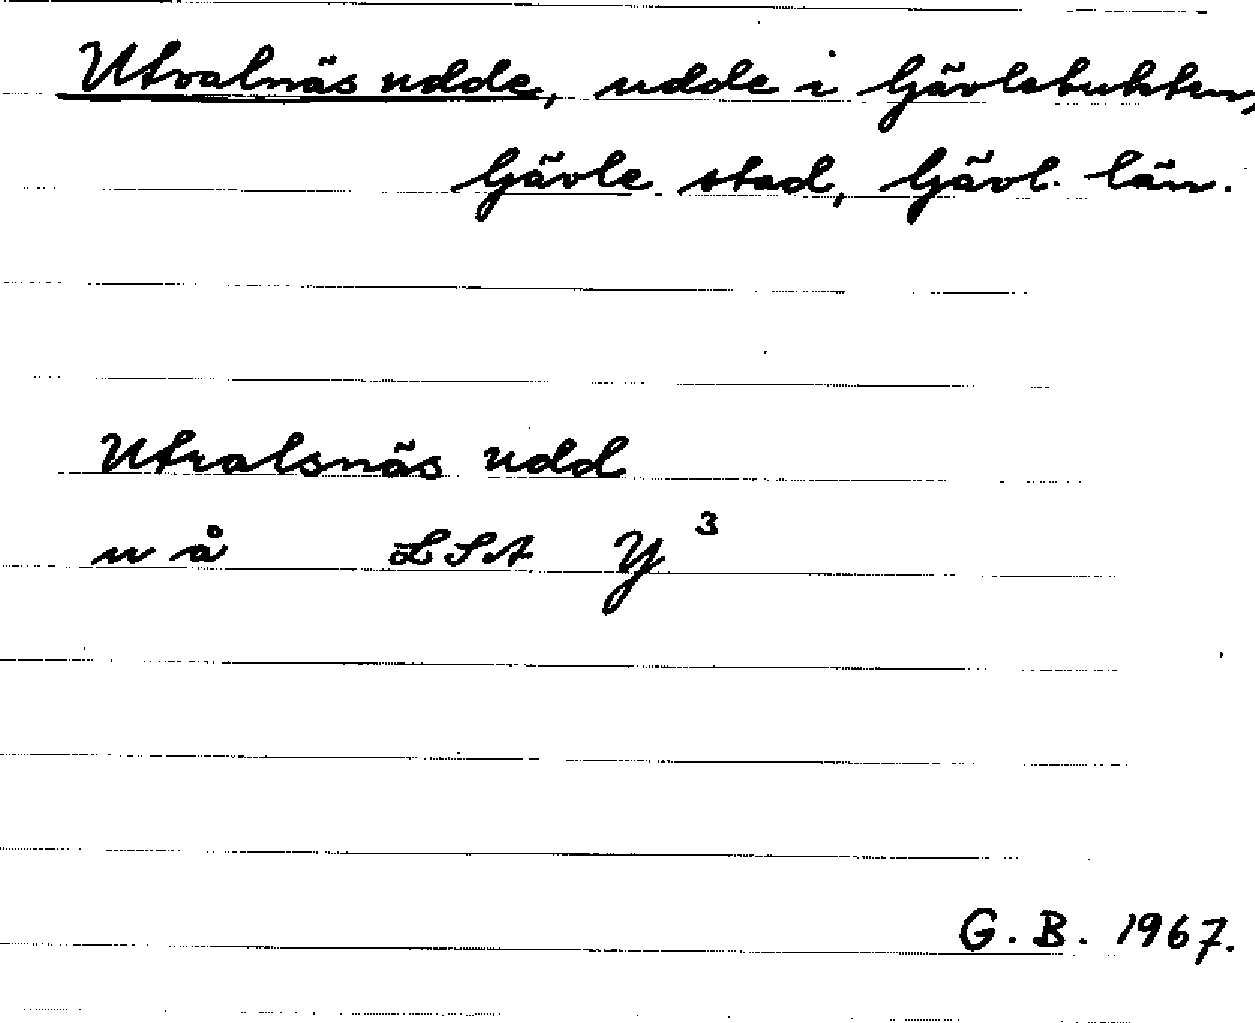 Utvalnäs udde, udde i Gävlebukten,
Gävle stad, Gävl. län.
Utvalsnäs udd
u å LSA Y 3
G. B. 1967.